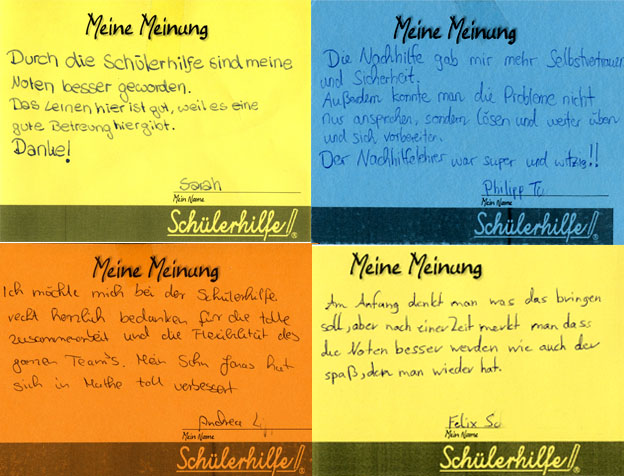 Meine Meinung
Durch die Schülerhilfe sind meine
Noten besser geworden.
Das Lernen hier ist gut, weil es eine
gute Betreung hier gibt.
Danke!
Sarah
Mein Name
Schülerhilfe!
Meine Meinung
Die Nachhilfe gab mir mehr Selbstvertrauen
und Sicherheit.
Außerdem konnte man die Probleme nicht
nur ansprechen, sondern lösen und weiter üben
und sich vorbereiten.
Der Nachhilfelehrer war super und witzig!!
Philipp To
Mein Name
Schülerhilfe!
Meine Meinung
Ich möchte mich bei der Schülerhilfe
recht herzlich bedanken für die tolle
zusammenarbeit und die Flexibilität des
ganzen Team's. Mein Sohn Jonas hat
sich in Mathe toll verbessert
Andrea
Mein Name
Schülerhilfe!
Meine Meinung
Am Anfang denkt man was das bringen
soll, aber nach einer Zeit merkt man dass
die Noten besser werden wie auch der
spaß, den man wieder hat.
Felix Sc
Mein Name
Schülerhilfe!